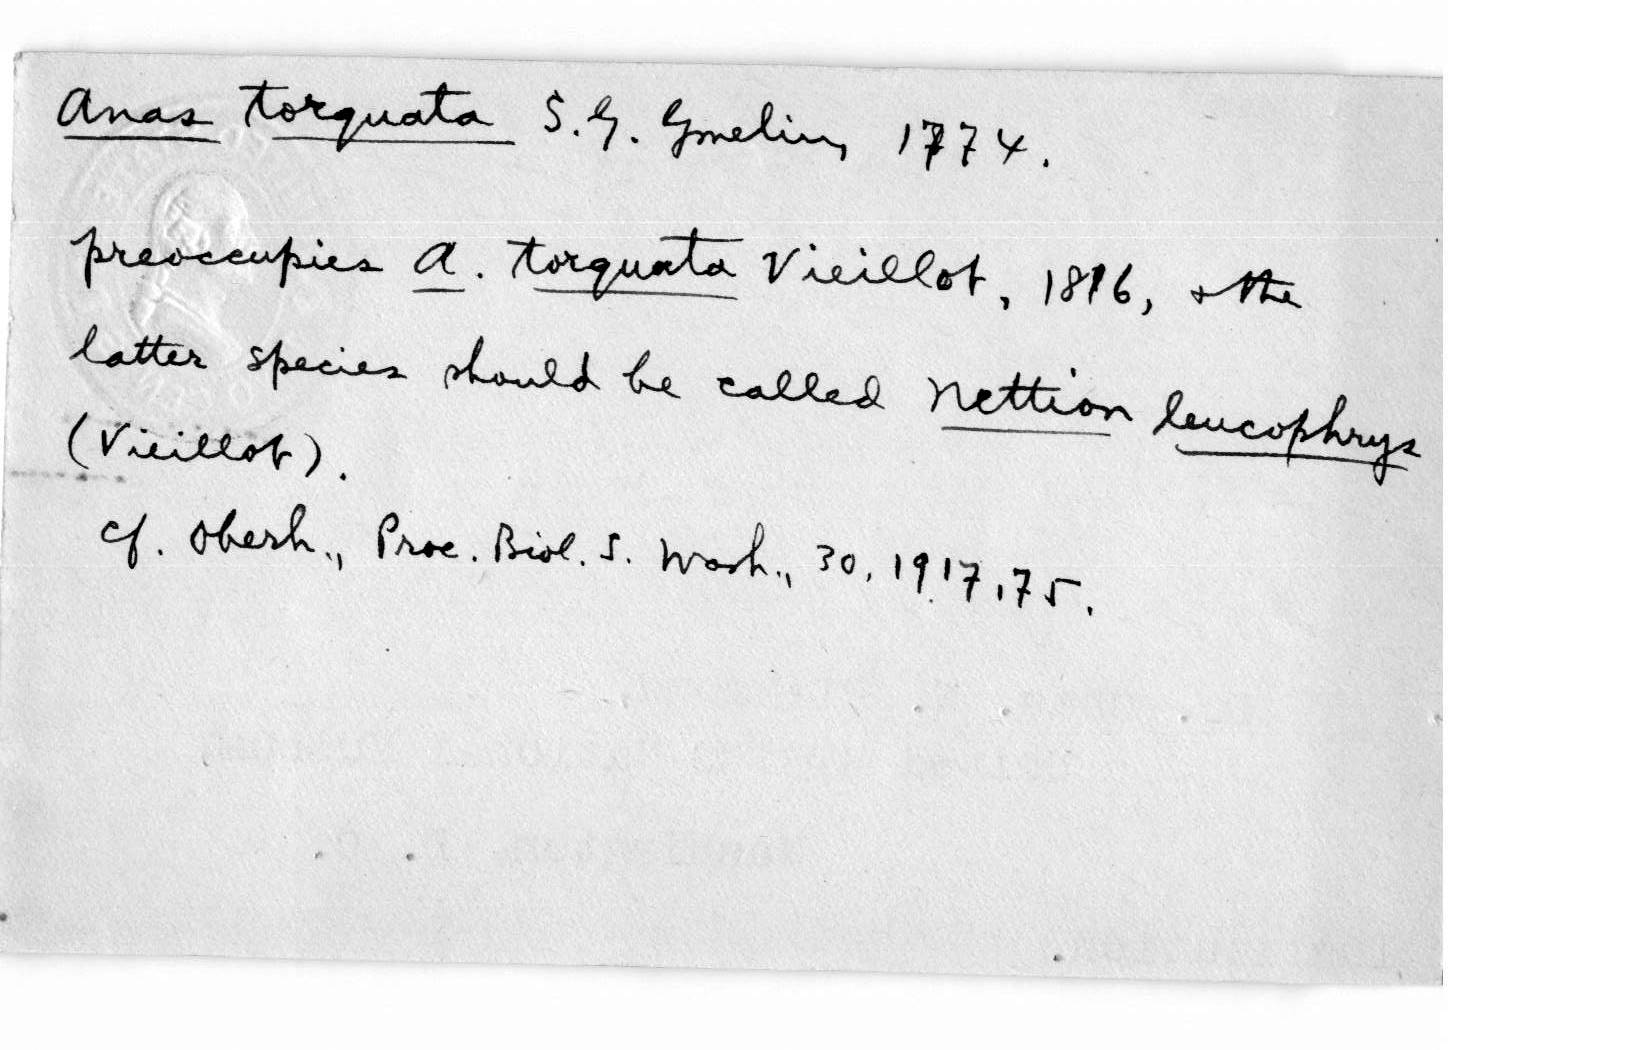 Anas torquata S. G. Gmelin, 1774.
preoccupies A. torquata Vieillot, 1816, & the
latter species should be called Nettion leucophrys
(Vieillot).
cf. Oberh., Proc. Biol. S. Wash., 30, 1917, 75.